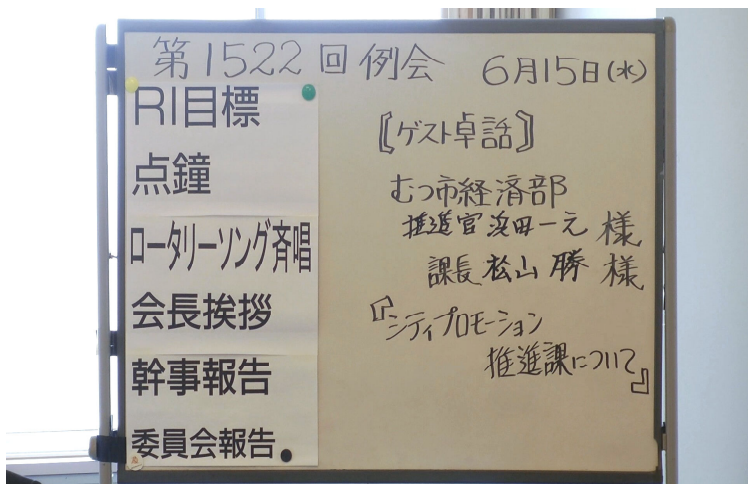 第1522回例会 6月15日(水)
RI目標
点鐘
ロータリーソング斉唱
会長挨拶
幹事報告
委員会報告
〖ゲスト卓話〗
むつ市経済部
推進官 浜田一元 様
課長 松山 勝 様
『シティプロモーション
推進課について』